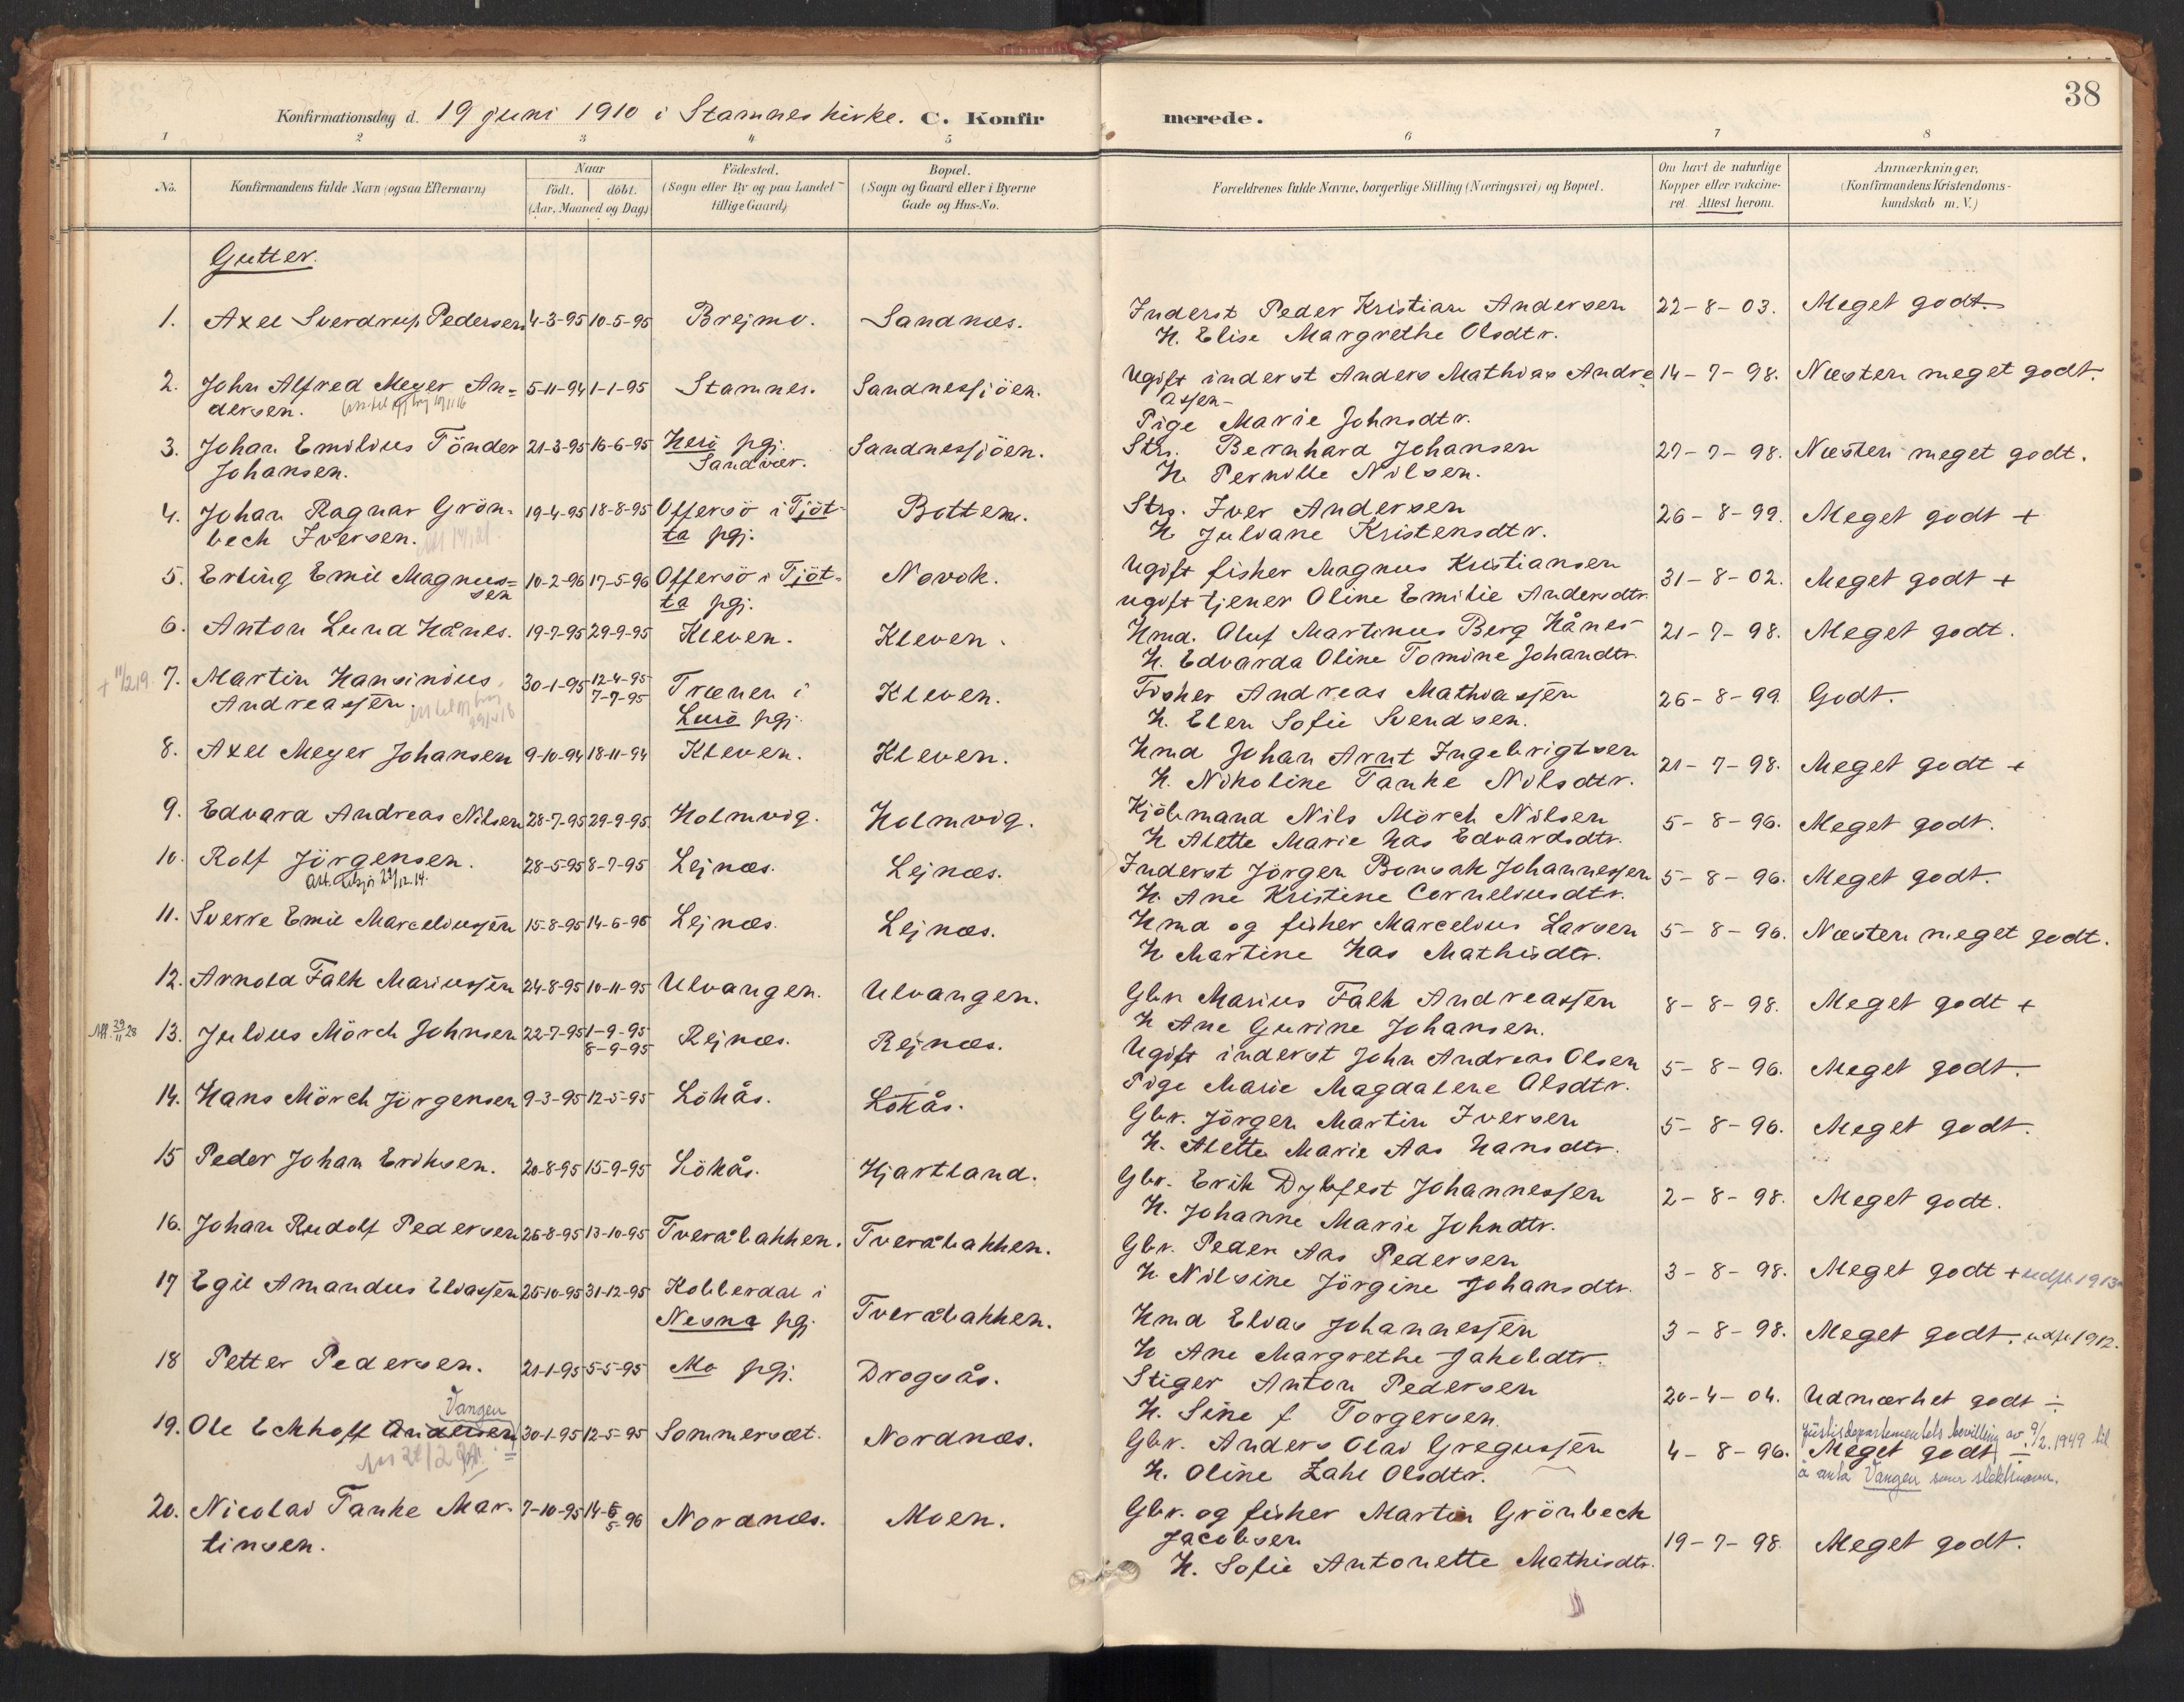 38
Konfirmationsdag d. 19 juni 1910 i Stamnes kirke. C. Konfirmerede.
1 2 3 4 5 6 7 8
No. Konfirmandens fulde Navn (ogsaa Efternavn) Naar Födested. Bopæl. Forældrenes fulde Navne, borgerlige Stilling (Næringsvei) og Bopæl. Om havt de naturlige Anmærkninger,
födt. döbt. (Sogn eller By og paa Landet (Sogn og Gaard eller i Byerne Kopper eller vakcine- (Konfirmandens Kristendoms-
(Aar, Maaned og Dag) tillige Gaard) Gade og Hus-No. ret. Attest herom. kundskab m. V.)
Gutter.
1. Axel Sverdrup Pedersen 4-3-95 10-5-95 Brejmo. Sandnæs. Inderst Peder Kristian Andersen 22-8-03. Meget godt
H. Elise Margrethe Olsdtr.
2. John Alfred Meyer An= 5-11-94 1-1-95 Stamnes. Sandnessjöen. Ugift inderst Anders Mathias Andre 14-7-98. Næsten meget godt.
dersen. assen
Pige Marie Johnsdtr.
3. Johan Emilius Tönder 21-3-95 16-6-95 Herö pgj. Sandnessjöen. Strs. Bernhard Johansen 27-7-98. Næsten meget godt.
Johansen. Sandvær. H. Pernille Nilsen.
4. Johan Ragnar Grön- 19-4-95 18-8-95 Offersö i Tjöt- Botten. Strs. Iver Andersen 26-8-99. Meget godt +
bech Iversen. ta pgj. H. Juliane Kristensdtr.
5. Erling Emil Magnus= 10-2-96 17-5-96 Offersö i Tjöt- Novik. Ugift fisker Magnus Kristiansen 31-8-02. Meget godt +
sen ta pgj. ugift tjener Oline Emilie Andersdtr.
6. Anton Lund Hånes. 19-7-95 29-9-95 Kleven. Kleven. Hmd. Oluf Martinus Berg Hånes 21-7-98. Meget godt.
H. Edvarda Oline Tomine Johandtr.
7. Martin Hansinius 30-1-95 12-4-95 Trænen i Kleven. Fisker Andreas Mathiassen 26-8-99. Godt.
Andreassen. 7-7-95 Lurö pgj. H. Elen Sofie Svendsen.
8. Axel Meyer Johansen 9-10-94 18-11-94 Kleven. Kleven. Hmd Johan Arnt Ingebrigtsen 21-7-98. Meget godt +
H. Nikoline Tanke Nilsdtr.
9. Edvard Andreas Nilsen 28-7-95 29-9-95 Holmvig. Holmvig. Kjöbmand Nils Mörch Nilsen 5-8-96. Meget godt.
H. Alette Marie Has Edvardsdtr.
10. Rolf Jörgensen. 28-5-95 8-7-95 Lejnæs. Lejnæs. Inderst Jörgen Bonsak Johannessen 5-8-96. Meget godt.
H. Ane Kristine Corneliusdtr.
11. Sverre Emil Marceliussen 15-8-95 14-6-96 Lejnæs. Lejnæs. Hmd og fisker Marcelius Larsen 5-8-96. Næsten meget godt.
H Martine Has Mathisdtr.
12. Arnold Falk Mariussen 24-8-95 10-11-95 Ulvangen. Ulvangen. Gbr. Marius Falk Andreassen 8-8-98. Meget godt +
H Ane Gurine Johansen.
13. Julius Mörch Johnsen 22-7-95 1-9-95 Rejnæs. Rejnæs. Ugift inderst John Andreas Olsen 5-8-96. Meget godt.
8-9-95 Pige Marie Magdalene Olsdtr.
14. Hans Mörch Jörgensen 9-3-95 12-5-95 Lökås. Lökås. Gbr. Jörgen Martin Iversen 5-8-96. Meget godt.
H. Alette Marie Aas Hansdtr.
15 Peder Johan Eriksen. 20-8-95 15-9-95 Lökås. Hjartland. Gbr. Erik Dybfest Johannessen 2-8-98. Meget godt.
H. Johanne Marie Johndtr.
16. Johan Rudolf Pedersen 26-8-95 13-10-95 Tveråbakken. Tveråbakken. Gbr. Peder Aas Pedersen 3-8-98. Meget godt + udfl. 1913
H Nilsine Jörgine Johansdtr.
17 Egil Amandus Eliassen 25-10-95 31-12-95 Kobberdal i Tveråbakken. Hmd Elias Johannessen 3-8-98. Meget godt. udfl. 1912.
Nesna pgj. H Ane Margrethe Jakobdtr.
18 Petter Pedersen. 21-1-95 5-5-95 Mo pgj. Drogsås. Stiger Anton Pedersen 20-4-04. Udmærket godt ÷
H. Sine f Torgersen.
Vangen
19. Ole Eckhoff Andersen 30-1-95 12-5-95 Sommersæt. Nordnæs. Gbr. Anders Olai Gregussen 4-8-96. Meget godt ÷
H. Oline Zahl Olsdtr.
Justisdepartementets bevilling av 9/2.1949 til
å anta Vangen som slektsnavn.
20. Nicolai Tanke Mar- 7-10-95 14-5-96 Nordnæs. Moen. Gbr. og fisker Martin Grönbech
tinsen. Jacobsen 19-7-98. Meget godt.
H. Sofie Antonette Mathisdtr.